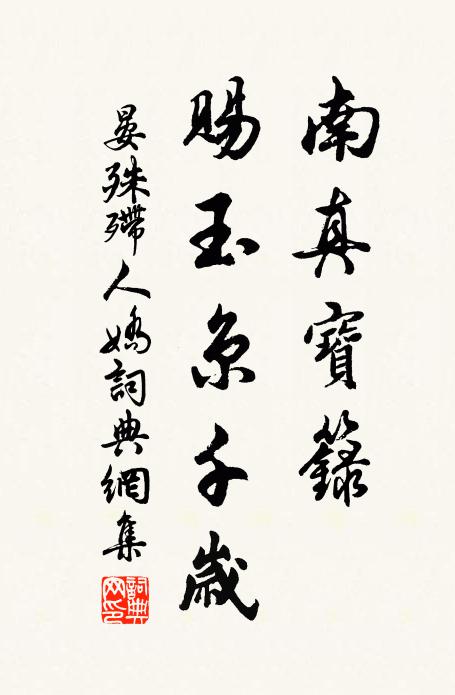 南真寶籙
賜玉京千歲
晏殊殢人嬌詞典網集
詞典网印